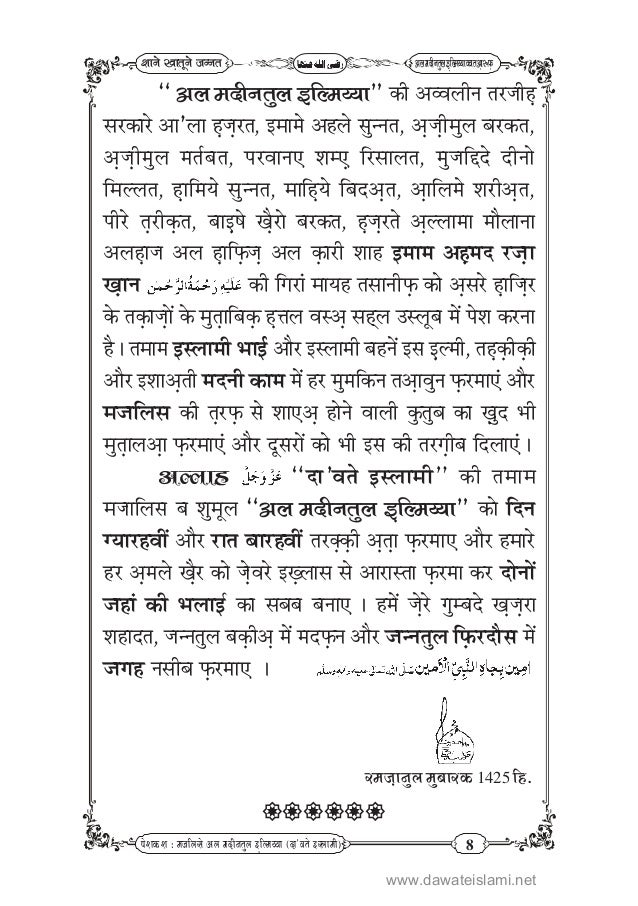 शाने ख़ातूने जन्नत
رضی اللہ عنہا
अल मदीनतुल इल्मिय्या का तआरुफ़
“ अल मदीनतुल इल्मिय्या” की अव्वलीन तरजीह़
सरकारे आ'ला ह़ज़रत, इमामे अहले सुन्नत, अ़ज़ीमुल बरकत,
अ़ज़ीमुल मर्तबत, परवानए शम्ए़ रिसालत, मुजद्दिदे दीनो
मिल्लत, ह़ामिये सुन्नत, माह़िये बिदअ़त, आ़लिमे शरीअ़त,
पीरे त़रीक़त, बाइषे ख़ैरो बरकत, ह़ज़रते अ़ल्लामा मौलाना
अलह़ाज अल ह़ाफ़िज़ अल क़ारी शाह इमाम अह़मद रज़ा
ख़ान عَلَيْهِ رَحْمَةُ الرَّحْمٰن की गिरां मायह तसानीफ़ को अ़सरे ह़ाज़िर
के तक़ाज़ों के मुत़ाबिक़ ह़त्तल वस्अ़ सह्ल उस्लूब में पेश करना
है । तमाम इस्लामी भाई और इस्लामी बहनें इस इ़ल्मी, तह़क़ीक़ी
और इशाअ़ती मदनी काम में हर मुमकिन तआ़वुन फ़रमाएं और
मजलिस की त़रफ़ से शाएअ़ होने वाली कुतुब का ख़ुद भी
मुत़ालआ़ फ़रमाएं और दूसरों को भी इस की तरग़ीब दिलाएं ।
अल्लाह عَزَّوَجَلَّ “दा 'वते इस्लामी” की तमाम
मजालिस ब शुमूल “अल मदीनतुल इल्मिय्या” को दिन
ग्यारहवीं और रात बारहवीं तरक़्क़ी अ़त़ा फ़रमाए और हमारे
हर अ़मले ख़ैर को ज़ेवरे इख़्लास से आरास्ता फ़रमा कर दोनों
जहां की भलाई का सबब बनाए । हमें ज़ेरे गुम्बदे ख़ज़रा
शहादत, जन्नतुल बक़ीअ़ में मदफ़न और जन्नतुल फ़िरदौस में
जगह नसीब फ़रमाए । اٰمِين بِجَاهِ النَّبِيِّ الْاَمين صلَّی اللہ تعالٰی علیہ واٰلہٖ وسلَّم
रमज़ानुल मुबारक 1425 हि.
पेशकश : मजलिसे अल मदीनतुल इल्मिय्या (दा'वते इस्लामी)
8
www.dawateislami.net